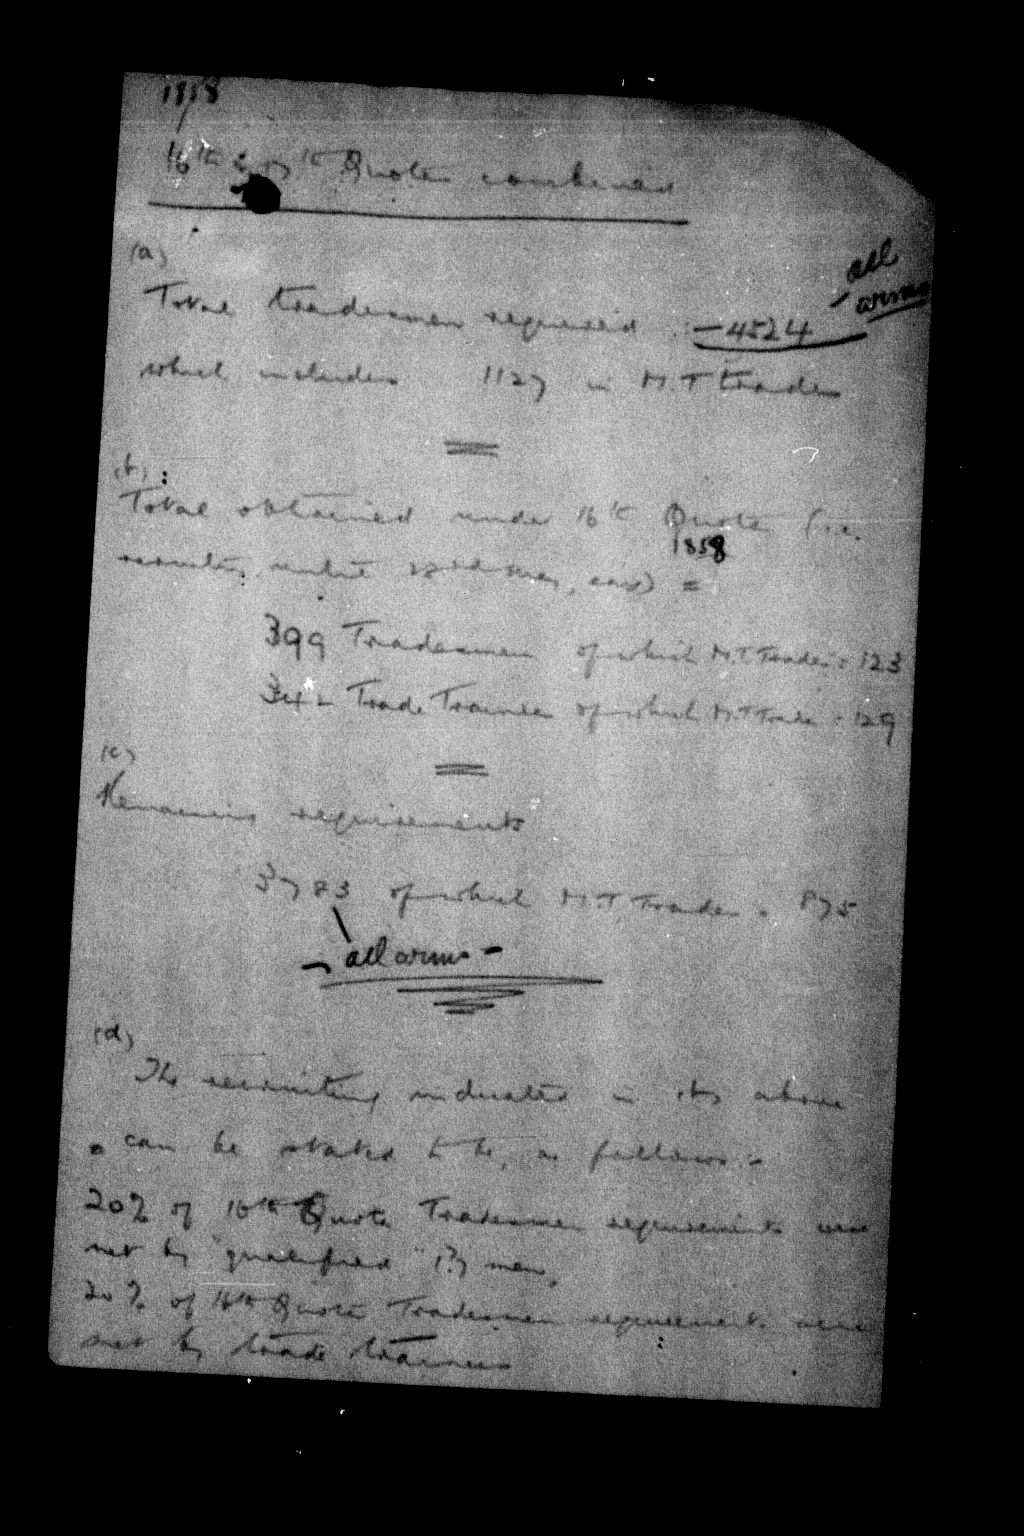 1858
16th & 17th Quota combined
(a)
all
arms
Total tradesmen required :- 4524
which includes 1127 in M.T trades
(b)
Total obtained under 16th Quota (i.e.
1858
recruiting until =
399 Tradesmen of which M.T. Trades = 123
342 Trade Trainees of which M.T Trade = 129
(c)
Remaining requirements
3783 of which M.T. Trades = 875
- all arms -
(d)
The recruiting indicated in above
can be stated to be, as follows :-
20% of 16th Quota Tradesmen requirements were
met by "qualified" (?) men,
20% of 16th Quota Tradesmen requirements were
met by trade trainees